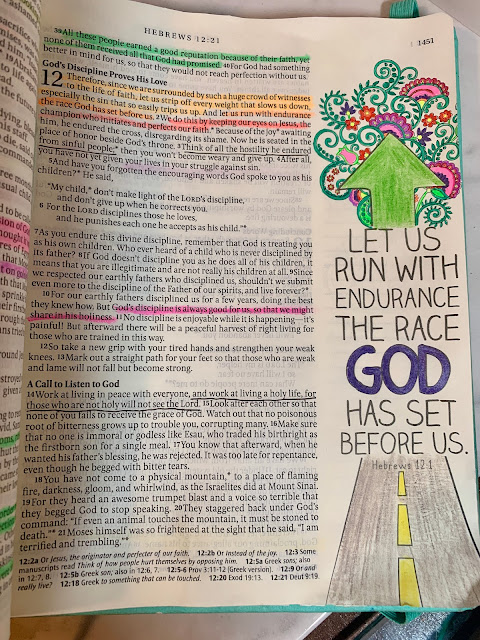 HEBREWS 12:21
1451
39All these people earned a good reputation because of their faith, yet
none of them received all that God had promised. 40For God had something
better in mind for us, so that they would not reach perfection without us.
God's Discipline Proves His Love
12 Therefore, since we are surrounded by such a huge crowd of witnesses
to the life of faith, let us strip off every weight that slows us down,
especially the sin that so easily trips us up. And let us run with endurance
the race God has set before us. 2We do this by keeping our eyes on Jesus, the
champion who initiates and perfects our faith.* Because of the joy* awaiting
him, he endured the cross, disregarding its shame. Now he is seated in the
place of honor beside God's throne. 3Think of all the hostility he endured
from sinful people;* then you won't become weary and give up. 4After all,
you have not yet given your lives in your struggle against sin.
5And have you forgotten the encouraging words God spoke to you as his
children?* He said,
"My child,* don't make light of the LORD's discipline,
and don't give up when he corrects you.
6 For the LORD disciplines those he loves,
and he punishes each one he accepts as his child."*
7As you endure this divine discipline, remember that God is treating you
as his own children. Who ever heard of a child who is never disciplined by
its father? 8If God doesn't discipline you as he does all of his children, it
means that you are illegitimate and are not really his children at all. 9Since
we respected our earthly fathers who disciplined us, shouldn't we submit
even more to the discipline of the Father of our spirits, and live forever?*
10For our earthly fathers disciplined us for a few years, doing the best
they knew how. But God's discipline is always good for us, so that we might
share in his holiness. 11No discipline is enjoyable while it is happening—it's
painful! But afterward there will be a peaceful harvest of right living for
those who are trained in this way.
12So take a new grip with your tired hands and strengthen your weak
knees. 13Mark out a straight path for your feet so that those who are weak
and lame will not fall but become strong.
A Call to Listen to God
14Work at living in peace with everyone, and work at living a holy life, for
those who are not holy will not see the Lord. 15Look after each other so that
none of you fails to receive the grace of God. Watch out that no poisonous
root of bitterness grows up to trouble you, corrupting many. 16Make sure
that no one is immoral or godless like Esau, who traded his birthright as
the firstborn son for a single meal. 17You know that afterward, when he
wanted his father's blessing, he was rejected. It was too late for repentance,
even though he begged with bitter tears.
18You have not come to a physical mountain,* to a place of flaming
fire, darkness, gloom, and whirlwind, as the Israelites did at Mount Sinai.
19For they heard an awesome trumpet blast and a voice so terrible that
they begged God to stop speaking. 20They staggered back under God's
command: "If even an animal touches the mountain, it must be stoned to
death."* 21Moses himself was so frightened at the sight that he said, "I am
terrified and trembling."*
12:2a Or Jesus, the originator and perfecter of our faith. 12:2b Or Instead of the joy. 12:3 Some
manuscripts read Think of how people hurt themselves by opposing him. 12:5a Greek sons; also
in 12:7, 8. 12:5b Greek son; also in 12:6, 7. 12:5-6 Prov 3:11-12 (Greek version). 12:9 Or and
really live? 12:18 Greek to something that can be touched. 12:20 Exod 19:13. 12:21 Deut 9:19
LET US
RUN WITH
ENDURANCE
THE RACE
GOD
HAS SET
BEFORE US.
Hebrews 12:1